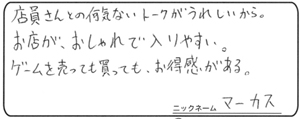 店員さんとの何気ないトークがうれしいから。
お店が、おしゃれで入りやすい。
ゲームを売っても買っても、お得感がある。
ニックネーム マーカス